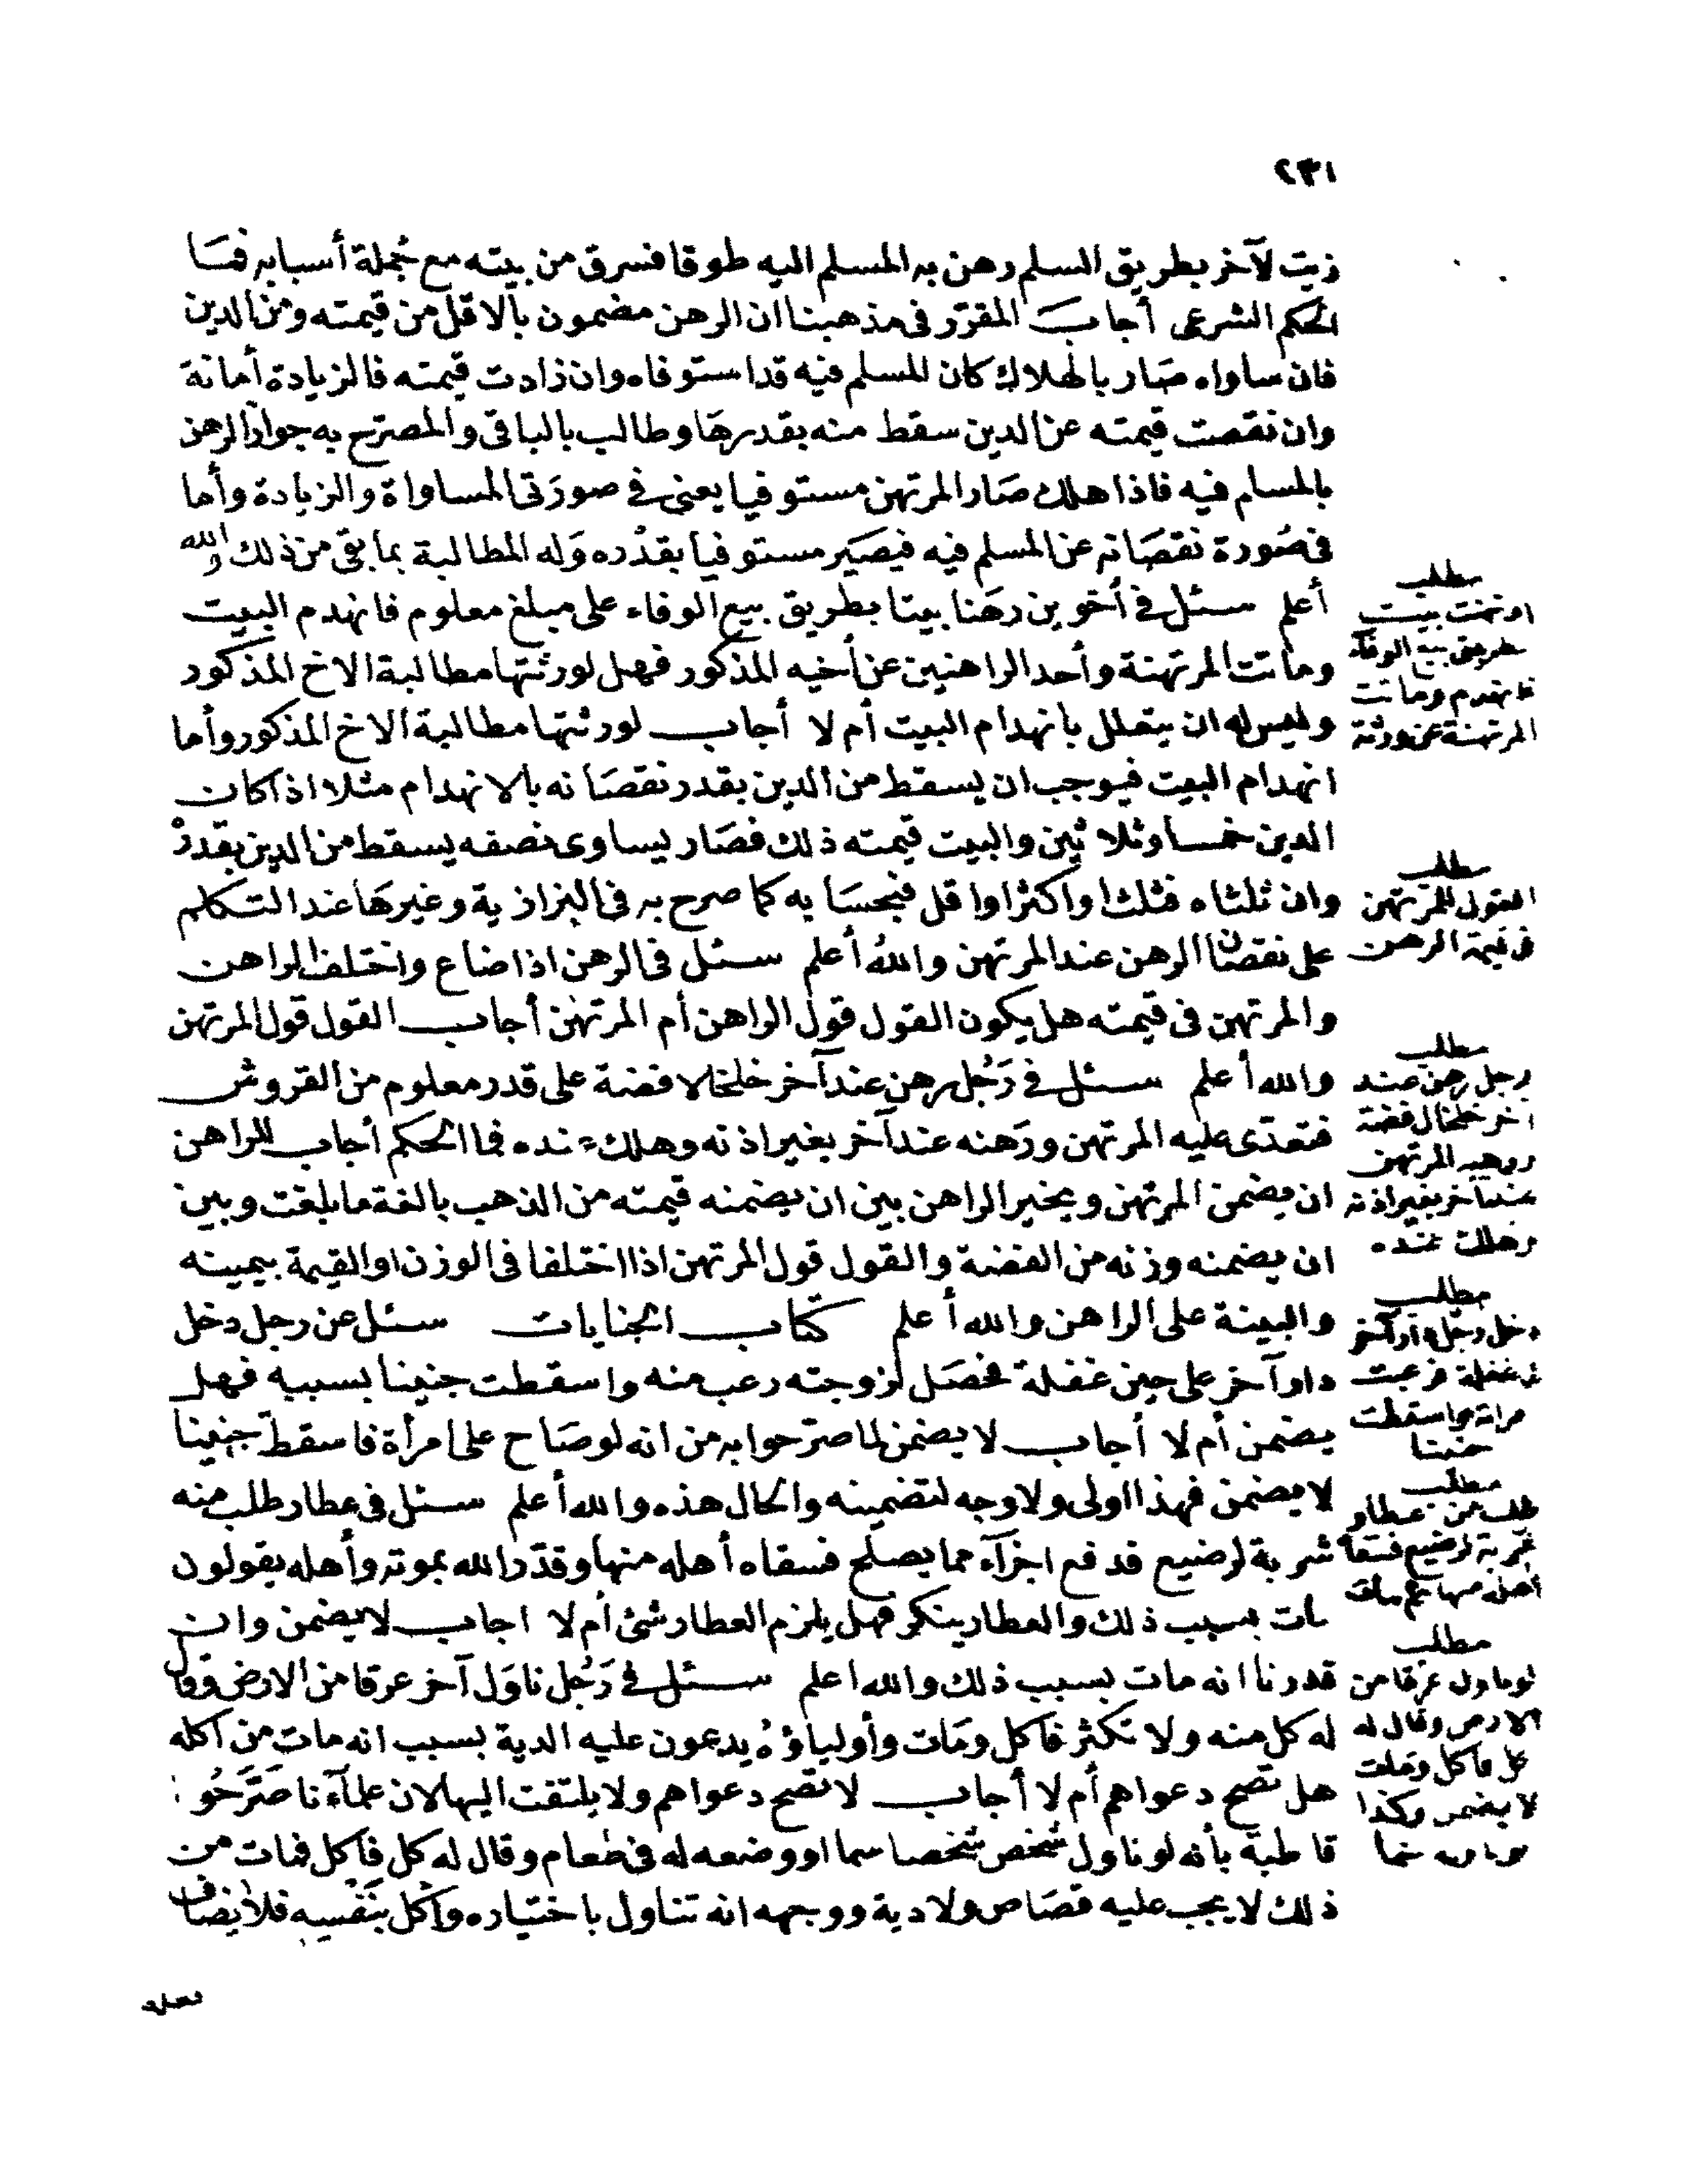 ٢٣١
زيت لآخر بطريق السلم رهن به المسلم اليه طوقا فسرق من بيته مع جُملة أسبابه فمَا
الحكم الشرعى أجابَ المقرّر فى مذهبنا ان الرهن مضمون بالاقل من قيمته ومن الدين
فان ساواه صَار بالهلاك كان المسلم فيه قد استوفاه وان زادت قيمته فالزيادة أمانة
وان نقصت قيمته عن الدين سقط منه بقدرهَا وطالب بالباقى والمصترح به جواز الرهن
بالمسلم فيه فاذا هلك صَار المرتهن مستوفيا يعنى فى صورَتى المساواة والزيادة وأما
فى صُورة نقصَانه عن المسلم فيه فيصَير مستوفيا بقدْره وَله المطالبة بما بقى من ذلك والله
أعلم سئل فى أخوين رهَنا بيتا بطريق بيع الوفاء على مبلغ معلوم فانهدم البيت
وماتت المرتهنة وأحد الراهنين عن أخيه المذكور فهل لورثتها مطالبة الاخ المذكور
وليس له ان يتعلل بانهدام البيت أم لا أجاب لورثتها مطالبة الاخ المذكور وأما
انهدام البيت فيوجب ان يسقط من الدين بقدر نقصَانه بالانهدام مثلا اذا كان
الدين خمسا وثلاثين والبيت قيمته ذلك فصَار يساوى نصفه يسقط من الدين بقدره
وان ثلثاه فثلثا واكثرا واقل فبحسَابه كما صرح به فى البزازية وغيرهَا عند التكلم
على نقصَان الرهن عند المرتهن واللهُ أعلم سئل فى الرهن اذا ضاع واختلف الراهن
والمرتهن فى قيمته هل يكون القول قول الراهن أم المرتهن أجاب القول قول المرتهن
والله أعلم سئل فى رَجُل رهن عند آخر خلخالا فضة على قدر معلوم من القروش
فتعدّى عليه المرتهن ورَهنه عند آخر بغير اذنه وهلك عنده فما الحكم أجاب للراهن
ان يضمن المرتهن ويخير الراهن بين ان يضمنه قيمته من الذهب بالغة ما بلغت وبين
ان يضمنه وزنه من الفضة والقول قول المرتهن اذا اختلفا فى الوزن او القيمة بيمينه
والبينة على الراهن والله أعلم كتاب الجنايات سئل عن رجل دخل
دار آخر على حين غفلة فحصَل لزوجته رعب منه واسقطت جنينا بسببه فهل
يضمن أم لا أجاب لا يضمن لما صرّحوا به من انه لو صَاح على امرأة فاسقطت جنينا
لا يضمن فهذا اولى ولا وجه لتضمينه والحال هذه والله أعلم سئل فى عطار طلب منه
شربة لرضيع فدفع اجزآء مما يصلح فسقاه أهله منها وقدّر الله بموته وأهله يقولون
مات بسبب ذلك والعطار ينكر فهل يلزم العطار شئ أم لا اجاب لا يضمن وان
قدرنا انه مات بسبب ذلك والله اعلم سئل فى رَجُل ناوَل آخر عرقا من الارض وقال
له كل منه ولا تكثر فاكل ومَات وأولياؤهُ يدعون عليه الدية بسبب انه مات من اكله
هل تصح دعواهم أم لا أجاب لا تصح دعواهم ولا يلتفت اليها لان علمآءنا صَرَّحُوا
قاطبة بأنه لو ناول شخص شخصا سما او وضعه له فى طعام وقال له كل فأكل فمات من
ذلك لا يجب عليه قصَاص ولا دية ووجهه انه تناول باختياره وأكل بنَفسِه فلا يضاف
مطلب
ارتهنت بيت
بطريق بيع الوفآء
فانهدم وماتت
المرتهنة عن ورثة
مطلب
القول للمرتهن
فى قيمة الرهن
مطلب
رجل رهن عند
آخر خلخال فضة
ورهنه المرتهن
عند آخر بغير اذنه
وهلك عنده
مطلب
دخل رجل دار آخر
فى غفلة فرعبت
مراته واسقطت
جنينا
مطلب
طلب من عطار
شربة لرضيع فسقاه
أهله منها ثم مات
مطلب
لو ناول عرقا من
الارض وقال له
كل فأكل ومات
لا يضمن وكذا